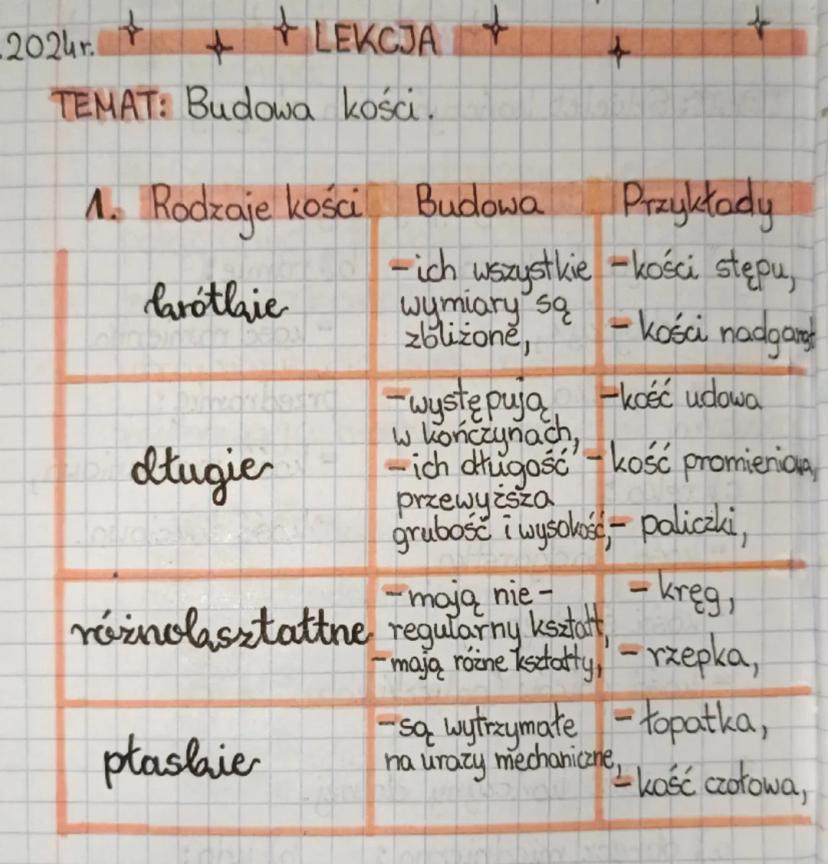 .2024r. LEKCJA
TEMAT: Budowa kości.
1. Rodzaje kości Budowa Przykłady
krótkie
-ich wszystkie
wymiary są
zbliżone,
-kości stępu,
- kości nadgarst
długie
-występują
w kończynach,
-ich długość
przewyższa
grubość i wysokość,
-kość udowa
- kość promieniowa,
- paliczki,
różnokształtne
-mają nie-
regularny kształt,
-mają różne kształty,
- kręg,
- rzepka,
płaskie
-są wytrzymałe
na urazy mechaniczne,
- łopatka,
- kość czołowa,